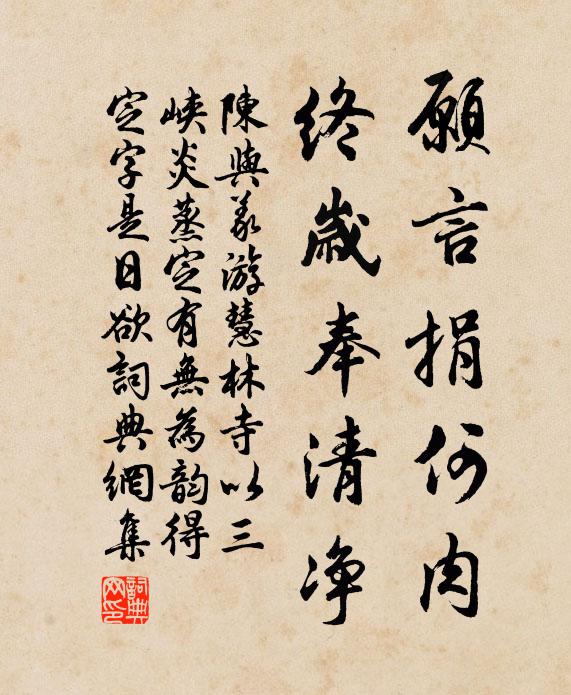 願言捐何肉
終歲奉清净
陳與義游慧林寺以三
峽炎蒸定有無為韵得
定字是日欲詞典網集
詞典網印